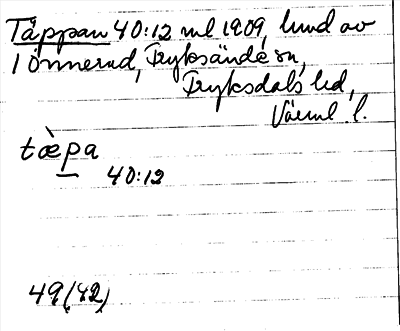 Täppan 40:12 ml 1909, lund av
1 Önnerud, Fryksände sn,
Fryksdals hd,
Värml. l.
tæ̀pa
40:12
49(42)